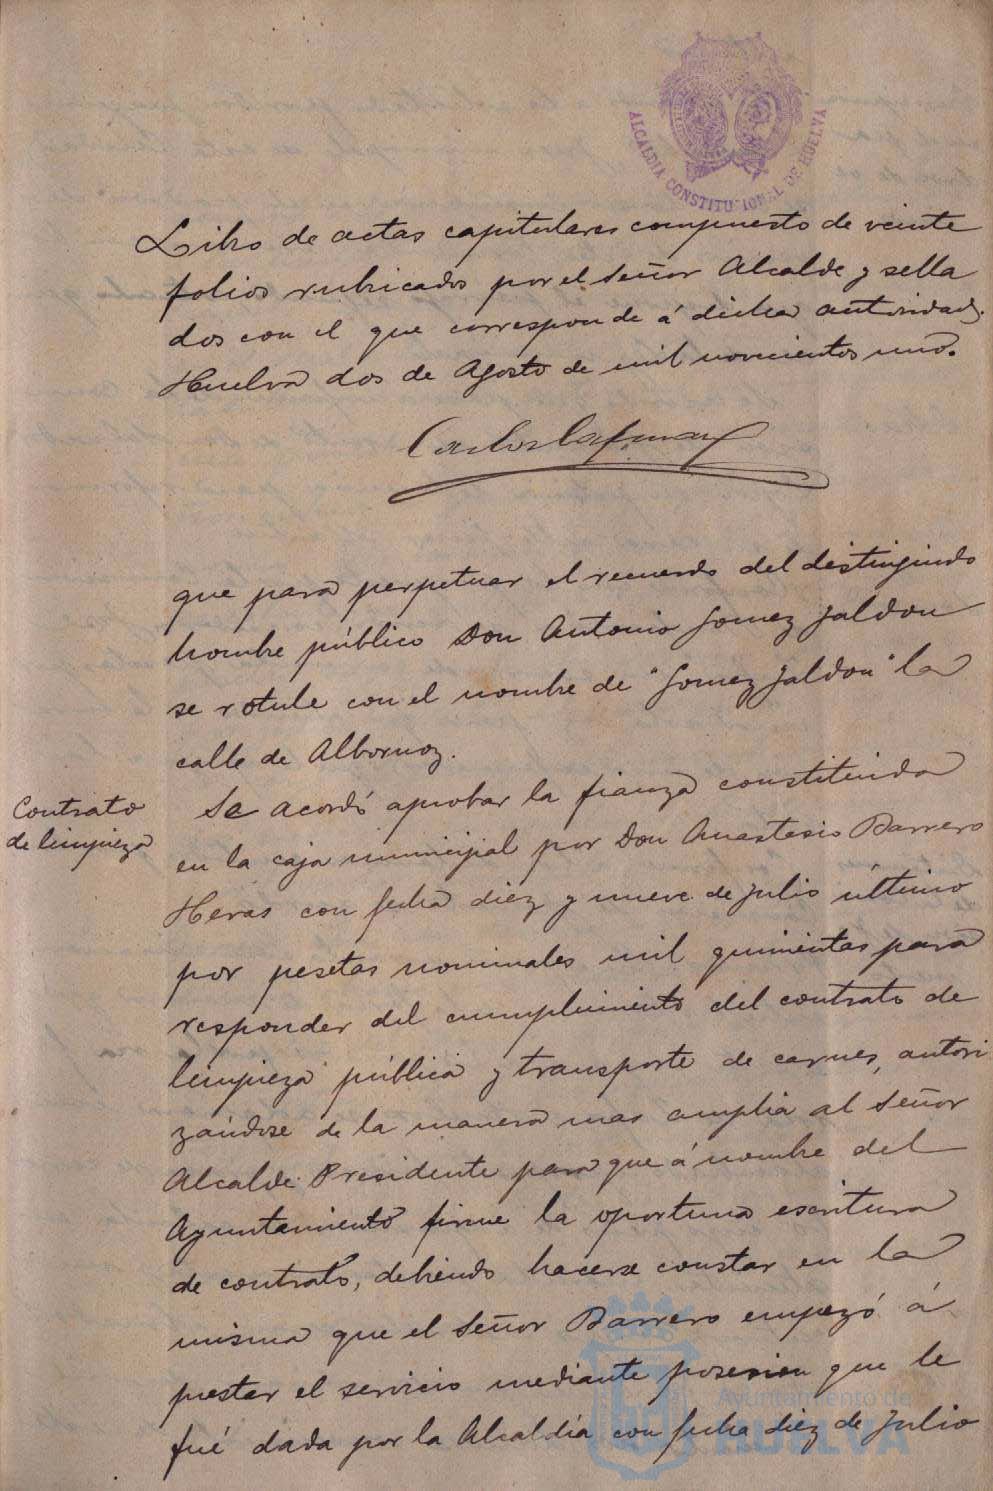 ALCALDIA CONSTITUCIONAL DE HUELVA
Libro de actas capitulares compuesto de veinte
folios rubricados por el Señor Alcalde y sella
dos con el que corresponde á dicha autoridad.
Huelva dos de Agosto de mil novecientos uno.
Carlos
que para perpetuar el recuerdo del distinguido
hombre público Don Antonio Gomez Jaldon
se rotule con el nombre de "Gomez Jaldon" la
calle de Albornoz.
Contrato
de limpieza
Se acordó aprobar la fianza constituida
en la caja municipal por Don Anastasio Barrero
Heras con fecha diez y nueve de julio último
por pesetas nominales mil quinientas para
responder del cumplimiento del contrato de
limpieza pública y transporte de carnes, autori
zandose de la manera mas amplia al Señor
Alcalde Presidente para que á nombre del
Ayuntamiento firme la oportuna escritura
de contrato, debiendo hacerse constar en la
misma que el Señor Barrero empezó á
prestar el servicio mediante posesion que le
fué dada por la Alcaldía con fecha diez de Julio
Ayuntamiento de
HUELVA